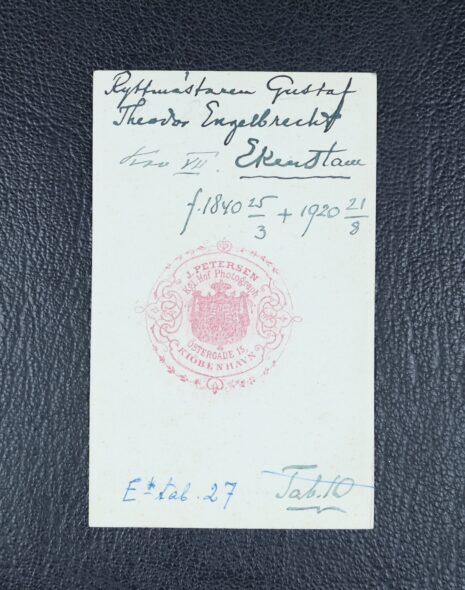 Ryttmästaren Gustaf
Theodor Engelbrecht
VII. Ekenstam
f. 1840 25/3 + 1920 21/8
J. PETERSEN
Kgl. Hof Photograph
ÖSTERGADE 15.
KIÖBENHAVN
Tab. 27
Tab. 10